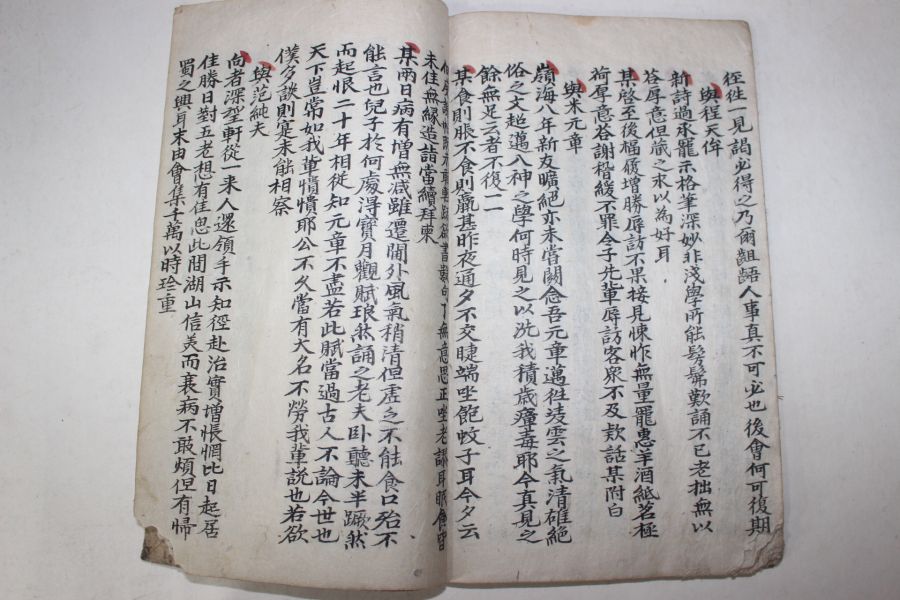 徃徃一見謁必得之乃爾齟齬人事真不可必也後會何可復期
與程天侔
新詩過承寵示格筆深妙非淺學所能髣髴歎誦不已老拙無以
荅厚意但藏之永以為好耳
某啓至後福履增勝辱訪不果接見悚怍無量寵惠羊酒紙茗極
荷厚意谷謝稽緩不罪令子先輩辱訪客衆不及欵話某附白
與米元章
嶺海八年親友曠絕亦未嘗關念吾元章邁往凌雲之氣清雄絕
俗之文超邁入神之學何時見之以洗我積歲瘴毒耶今真見之
餘無足云者不復一二
某食則脹不食則羸甚昨夜通夕不交睫端坐飽蚊子耳今夕云
無意思正坐老謬耳眠食皆
未佳無緣造詣當續拜柬
某兩日病有增無减雖遷閘外風氣稍清但虛乏不能食口殆不
能言也兒子於何處淂寶月觀賦琅然誦之老夫卧聽未半蹶然
而起恨二十年相從知元章不盡若此賦當過古人不論今世也
天下豈常如我軰憒憒耶公不久當有大名不勞我軰說也若欲
僕多談則寔未能相察
與范純夫
向者深望軒從一来人還領手示知徑赴治實增悵惘比日起居
佳勝日對五老想有佳思此間湖山信羙而衰病不敢煩但有帰
蜀之興耳末由會集千萬以時珍重